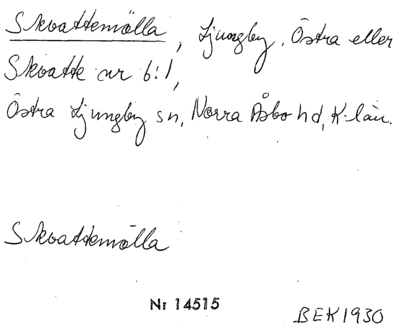 Skvattemölla, Ljungby, Östra eller
Skvatte nr 6:1,
Östra Ljungby sn, Norra Åsbo hd, K-län.
Skvattemölla
Nr 14515
BEK1930